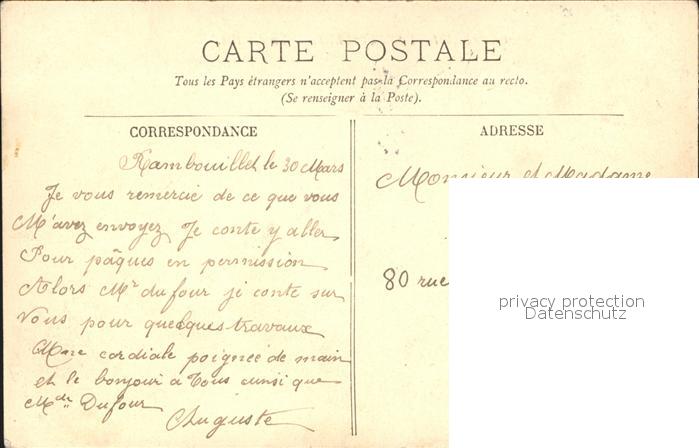 CARTE POSTALE
Tous les Pays étrangers n'acceptent pas la Correspondance au recto.
(Se renseigner à la Poste).
CORRESPONDANCE
Rambouillet le 30 Mars
Je vous remercie de ce que vous
M'avez envoyez Je conte y aller
Pour pâques en permission
Alors Mr dufour je conte sur
Vous pour quelques travaux
Une cordiale poignée de main
et le bonjour a Tous ainsi que
Mde Dufour
Auguste
ADRESSE
Monsieur et Madame
80 rue
privacy protection
Datenschutz